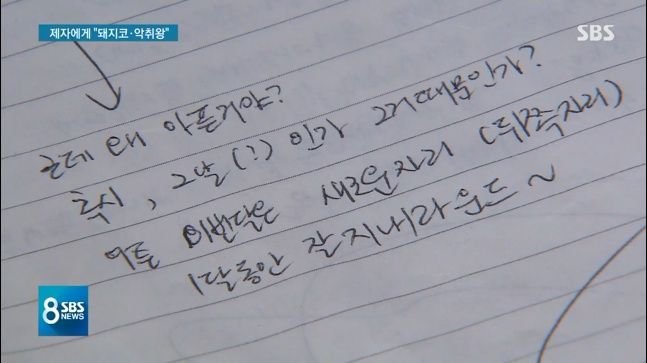 제자에게 "돼지코·악취왕"
SBS
근데 왜 아픈거야?
혹시, 그날(?)인가 그거때문인가?
이번달은 새로운자리 (뒤쪽자리)
1달동안 잘지내라운드~
8 SBS NEWS